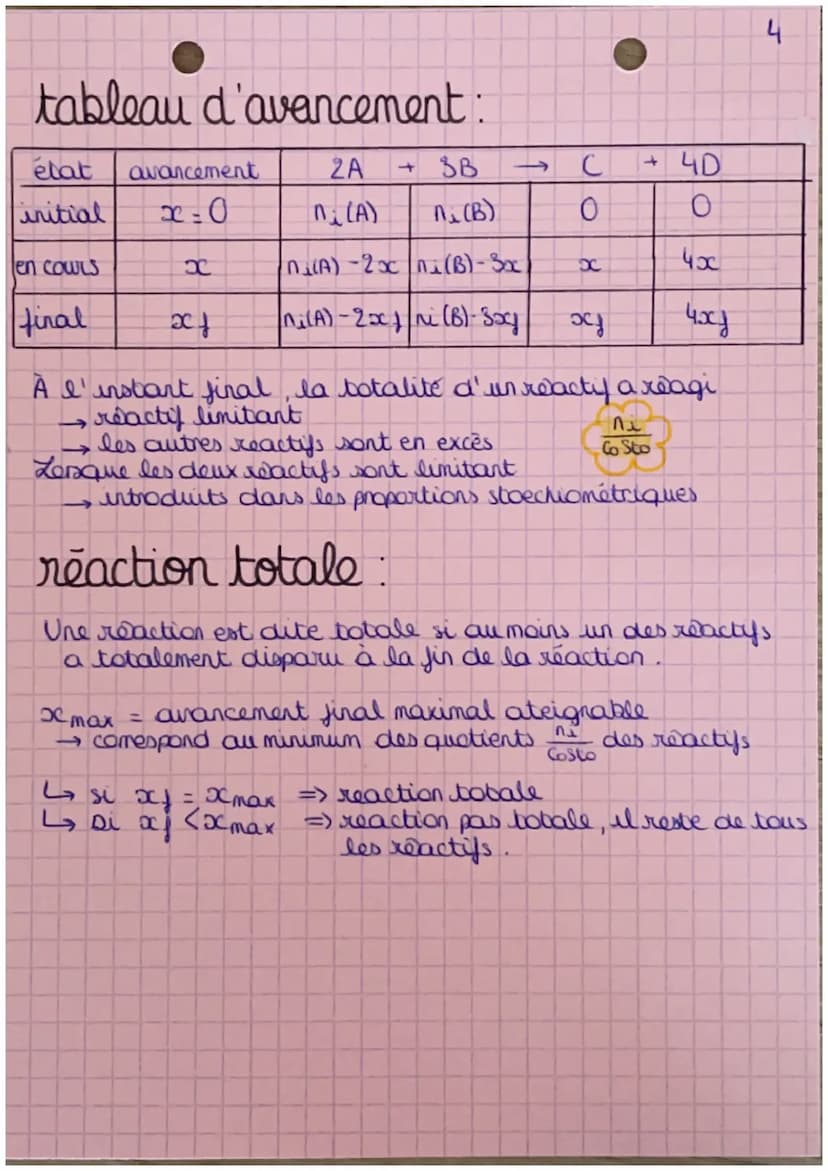 4
tableau d'avancement :
état avancement 2A + 3B → C + 4D
initial x = 0 ni(A) ni(B) 0 0
en cours x ni(A) - 2x ni(B) - 3x x 4x
final xf ni(A) - 2xf ni(B) - 3xf xf 4xf
À l'instant final, la totalité d'un réactif a réagi
→ réactif limitant
→ les autres réactifs sont en excès
ni
CoSto
Lorsque les deux réactifs sont limitant
→ introduits dans les proportions stoechiométriques
réaction totale :
Une réaction est dite totale si au moins un des réactifs
a totalement disparu à la fin de la réaction.
xmax = avancement final maximal ateignable
→ correspond au minimum des quotients ni/CoSto des réactifs
↳ si xf = xmax => reaction totale
↳ si xf < xmax => reaction pas totale, il reste de tous
les réactifs.